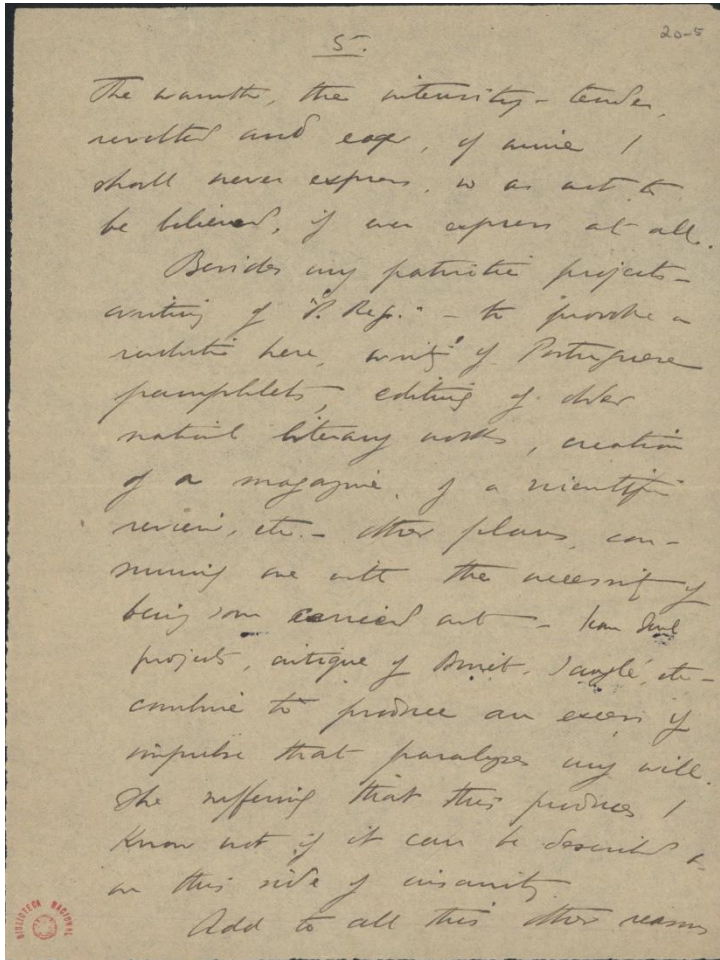 5.
20-5
The warmth, the intensity – tender,
revolted and eager, of mine I
shall never express, so as not to
be believed, if ever express at all.
Besides my patriotic projects –
writing of "P. Rep." – to provoke a
revolution here, writing of Portuguese
pamphlets, editing of older
national literary works, creation
of a magazine, of a scientific
review, etc. – other plans, con-
suming me with the necessity of
being soon carried out –
projects, critique of Binet-Sanglé, etc –
combine to produce an excess of
impulse that paralyzes my will.
The suffering that this produces I
know not if it can be described as
on this side of insanity.
Add to all this other reasons
BIBLIOTECA NACIONAL